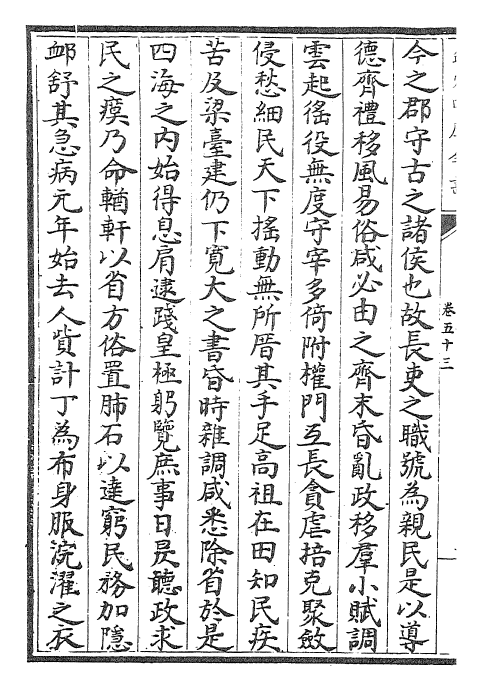 卷五十三
今之郡守古之諸侯也故長吏之職號為親民是以導
德齊禮移風易俗咸必由之齊末昏亂政移羣小賦調
雲起徭役無度守宰多倚附權門互長貪虐掊克聚斂
侵愁細民天下搖動無所厝其手足高祖在田知民疾
苦及梁臺建仍下寬大之書昏時雜調咸悉除省於是
四海之内始得息肩逮踐皇極躬覽庶事日昃聽政求
民之瘼乃命輶軒以省方俗置肺石以達窮民務加隱
䘏舒其急病元年始去人貲計丁為布身服浣濯之衣